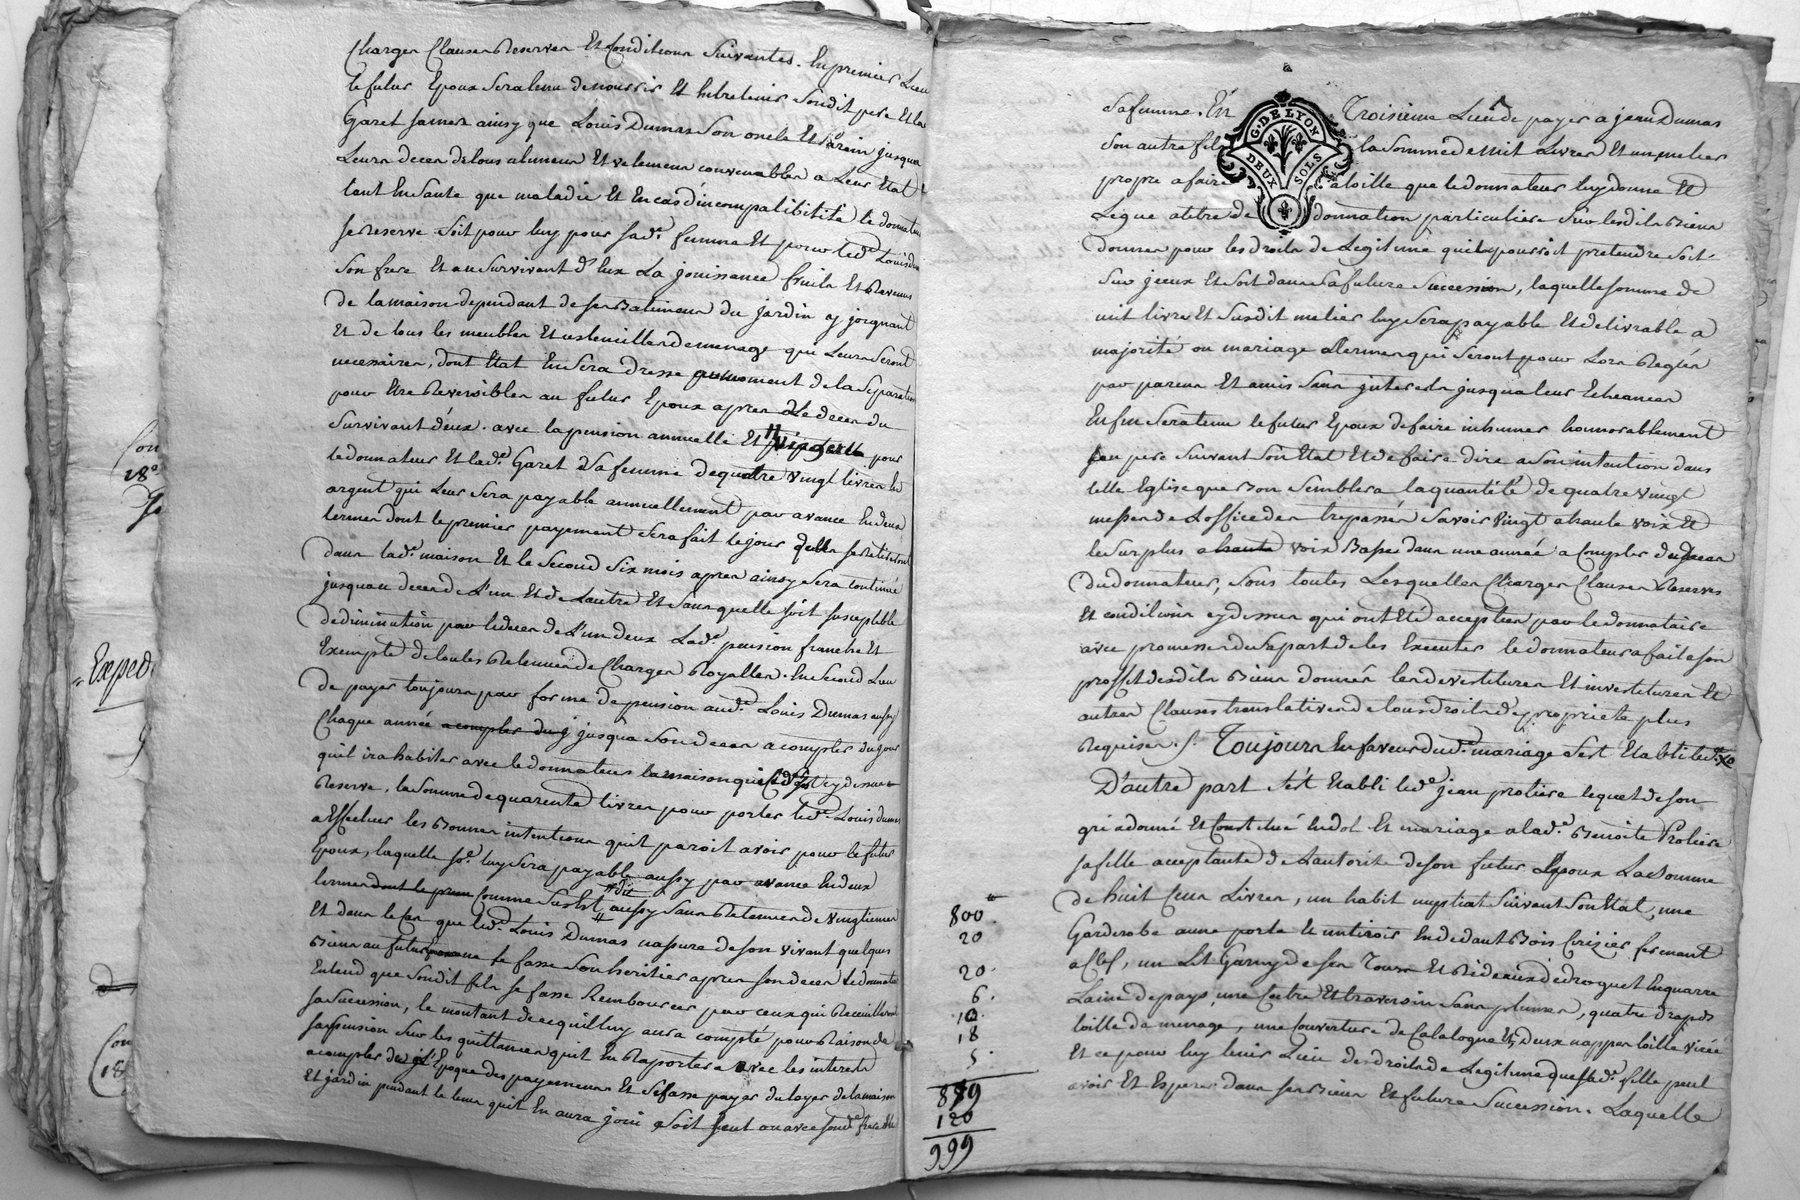 Charges Clauses Reserves Et Conditions Suivantes. En premier Lieu
le futur Epoux Sera tenu de nourrir Et Entretenir Sondit pere Et la
Garet sa mere ainsy que Louis Dumas Son oncle Et jusqua
Leurs deces de tous alimens Et vetemens convenables a Leur Etat
tant En Sante que maladie Et En cas d'incompatibilité le donnateur
se Reserve Soit pour luy pour sad.e femme Et pour led. Louis
Son frere Et au Survivant d'Eux La jouissance fruits Et Revenus
de la maison dependant de ses Batimens du jardin y joignant
Et de tous les meubles Et ustencilles de menage qui Leurs Seront
necessaires, dont Etat En Sera dressé au moment de la Separation
pour Etre Reversibles au futur Epoux apres Le deces du
Survivant d'eux. avec la pension annuelle Et viagere pour
le donnateur Et lad.e Garet Sa femme de quatre vingt livres En
argent qui Leur Sera payable annuellement par avance En deux
termes dont le premier payement Sera fait le jour quils se Retireront
dans lad.e maison Et le Second Six mois apres ainsy Sera continué
jusquau deces de L'un Et de Lautre Et Sans quelle soit susceptible
de diminution par le deces de L'un deux Lad.e pension franche Et
Exempte de toutes Retenues de Charges Royalles. En Second Lieu
de payer toujours par forme de pension aud. Louis Dumas aussy
Chaque année a compter du j jusqua Son deces a compter du jour
quil ira habiter avec le donnateur la maison qui Est cy dessus
Reservé, la Somme de quarente livres pour porter led. Louis dumas
a Effectuer les Bonnes intentions quil paroit avoir pour le futur
Epoux, laquelle so.e luy Sera payable aussy par avance En deux
termes dont le prem Comme Susdit aussy Sans Retenue de Vingtiemes
Et dans le Cas que led. Louis Dumas nassure de son vivant quelques
Biens au futur ne le fasse Son heritier apres son deces le donnateur
Entend que Sondit fils se fasse Rembourcer par ceux qui Recueilleront
sa Succession, le montant de ce quil luy aura compté pour Raison de
sa pension Sur les quittances quil En Raportera avec les interets
a compter de l'Epoque des payemens Et Se fasse payer du loyer de la maison
Et jardin pendant le tems quil En aura joui Soit Seul ou avec sond. frere Et
Sa femme. En Troisieme Lieu de payer a jean Dumas
G. DE LYON
DEUX SOLS
Son autre fils la Somme de huit Livres Et un metier
propre a faire la toille que le donnateur luy donne Et
Legue a titre de donnation particuliere Sur lesdits Biens
donnés pour les droits de Legitime quil pourroit pretendre Soit
Sur iceux Et Soit dans Sa future Succession, laquelle somme de
huit livres Et Susdit metier luy Sera payable Et delivrable a
majorité ou mariage a termes qui Seront pour Lors Reglés
par parens Et amis Sans interets jusqua leur Echeances
Enfin Sera tenu le futur Epoux de faire inhumer honnorablement
son pere Suivant Son Etat Et de faire dire a Son intention dans
telle Eglise que Bon Semblera la quantité de quatre vingt
messes de Loffice des trepassés Savoir vingt a haute voix Et
le Surplus a haute voix Basse dans une année a Compter du deces
du donnateur, Sous toutes Lesquelles Charges Clauses Reserves
Et conditions cy dessus qui ont Eté acceptées par le donnataire
avec promesse de Sa part de les Executer le donnateur a fait a son
proffit desdits Biens donnés les devestitures Et investitures Et
autres Clauses translatives de tous droits de propriete plus
Requises. Toujours En faveur dud. mariage S'est Etabli led.
D'autre part S'est Etabli led. jean protiere lequel de son
gré a donné Et Constitué En dot Et mariage a lad.e Benoite Protiere
sa fille acceptante de Lautorite de son futur Epoux La Somme
de huit Cens Livres, un habit nuptial Suivant Son Etat, une
Garderobe a une porte Et un tiroir En dedant Bois Cerisier fermant
a Clef, un Lit Garny de ses Tours Et Rideaux de droguet En quarré
Laine de pays, une Coëtre Et traversin Sans plumes, quatre draps
toille de menage, une Couverture de Catalogne Et deux nappes toille
Et ce pour luy tenir Lieu des droits de Legitime que sad.e fille peut
avoir Et Esperer dans ses Biens Et future Succession. Laquelle
800
20
20
6
10
18
5
879
120
999
Exped